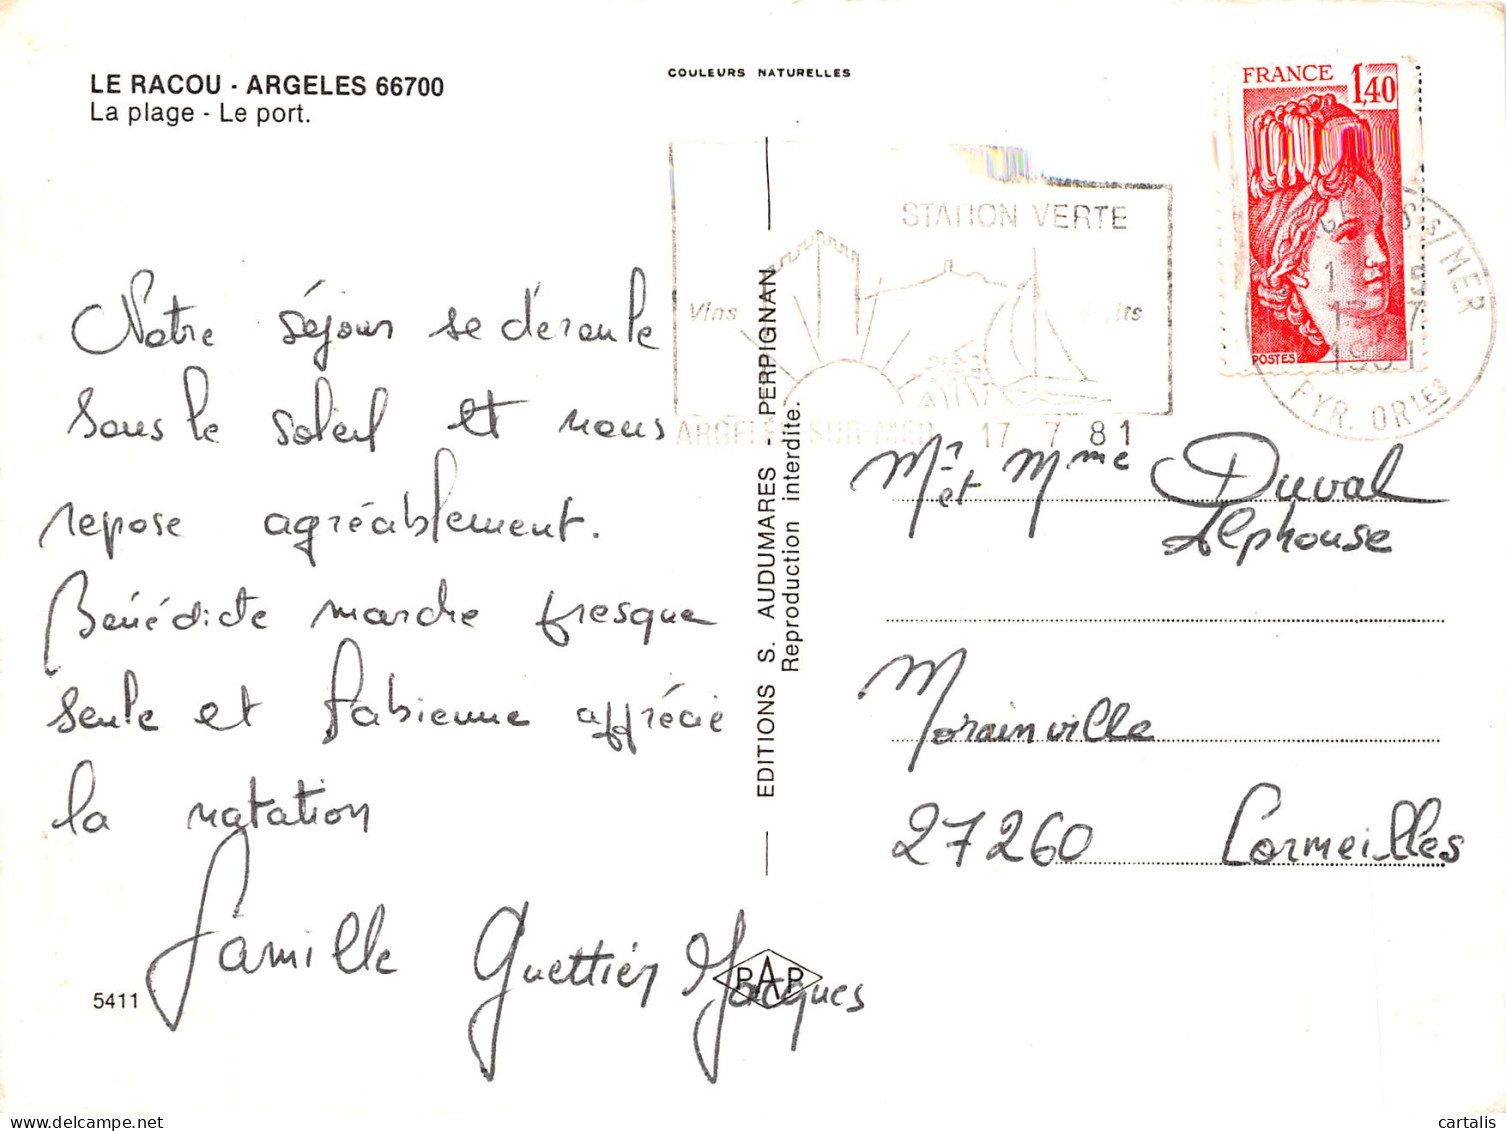 LE RACOU - ARGELES 66700
La plage - Le port.
COULEURS NATURELLES
FRANCE 1,40
POSTES
STATION VERTE
Vins
ARGELÈS-SUR-MER 17 7 81
S/MER
17 7
1981
PYR. ORLES
Notre séjour se déroule
sous le soleil et nous
repose agréablement.
Bénédicte marche presque
seule et Fabienne apprécie
la natation
Famille Guettier Jacques
5411
PAP
EDITIONS S. AUDUMARES - PERPIGNAN
Reproduction interdite.
Mr et Mme Duval
Alphonse
Morainville
27260 Cormeilles
delcampe.net
cartalis